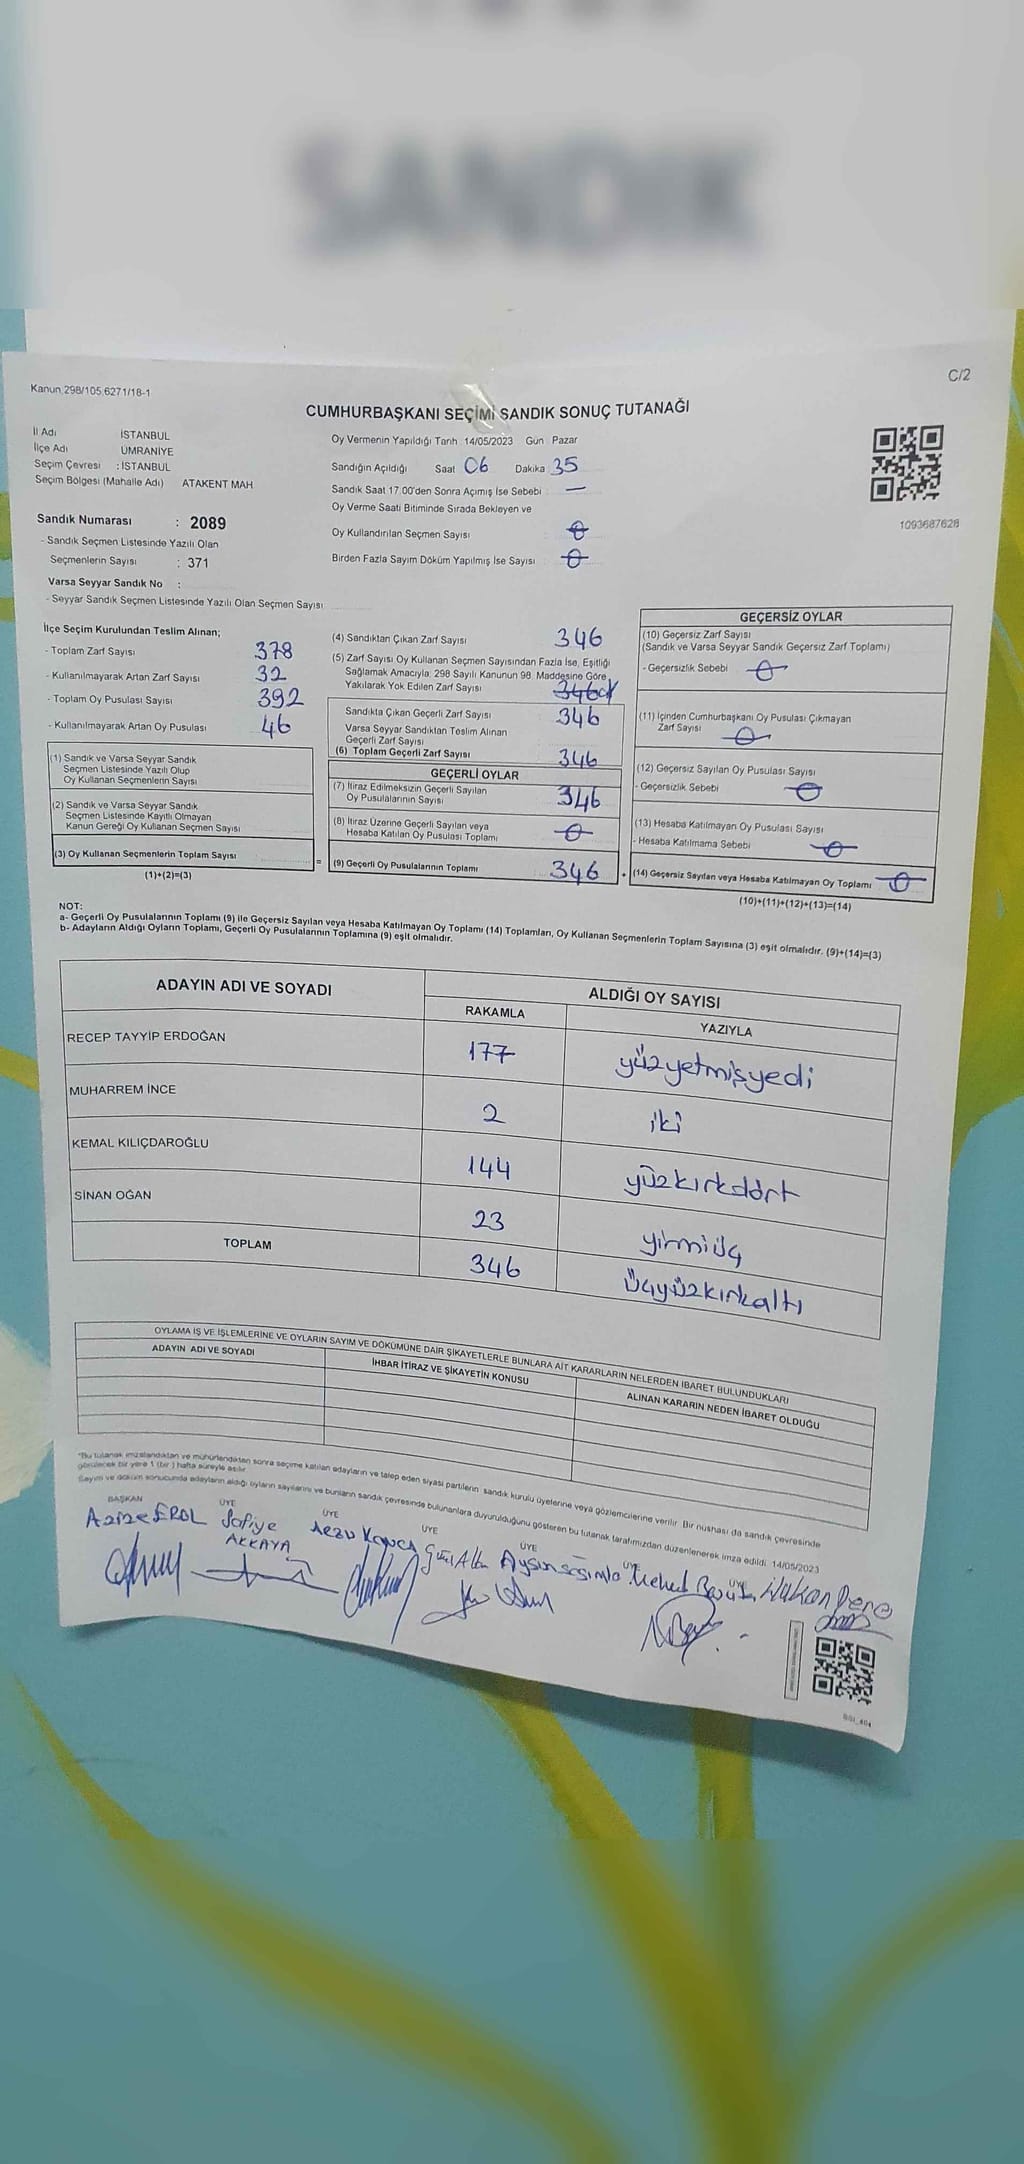 SANDIK
C/2
Kanun 298/105,6271/18-1
CUMHURBAŞKANI SEÇİMİ SANDIK SONUÇ TUTANAĞI
İl Adı İSTANBUL
İlçe Adı ÜMRANİYE
Seçim Çevresi : İSTANBUL
Seçim Bölgesi (Mahalle Adı) ATAKENT MAH
Oy Vermenin Yapıldığı Tarih 14/05/2023 Gün Pazar
Sandığın Açıldığı Saat 06 Dakika 35
Sandık Saat 17.00'den Sonra Açımış İse Sebebi : —
Oy Verme Saati Bitiminde Sırada Bekleyen ve
Oy Kullandırılan Seçmen Sayısı 0
Birden Fazla Sayım Döküm Yapılmış İse Sayısı 0
1093687628
Sandık Numarası : 2089
- Sandık Seçmen Listesinde Yazılı Olan
Seçmenlerin Sayısı : 371
Varsa Seyyar Sandık No :
- Seyyar Sandık Seçmen Listesinde Yazılı Olan Seçmen Sayısı
İlçe Seçim Kurulundan Teslim Alınan;
- Toplam Zarf Sayısı 378
- Kullanılmayarak Artan Zarf Sayısı 32
- Toplam Oy Pusulası Sayısı 392
- Kullanılmayarak Artan Oy Pusulası 46
(1) Sandık ve Varsa Seyyar Sandık
Seçmen Listesinde Yazılı Olup
Oy Kullanan Seçmenlerin Sayısı
(2) Sandık ve Varsa Seyyar Sandık
Seçmen Listesinde Kayıtlı Olmayan
Kanun Gereği Oy Kullanan Seçmen Sayısı
(3) Oy Kullanan Seçmenlerin Toplam Sayısı =
(1)+(2)=(3)
(4) Sandıktan Çıkan Zarf Sayısı 346
(5) Zarf Sayısı Oy Kullanan Seçmen Sayısından Fazla İse, Eşitliği
Sağlamak Amacıyla; 298 Sayılı Kanunun 98. Maddesine Göre
Yakılarak Yok Edilen Zarf Sayısı 346
Sandıkta Çıkan Geçerli Zarf Sayısı 346
Varsa Seyyar Sandıktan Teslim Alınan
Geçerli Zarf Sayısı
(6) Toplam Geçerli Zarf Sayısı 346
GEÇERLİ OYLAR
(7) İtiraz Edilmeksizin Geçerli Sayılan
Oy Pusulalarının Sayısı 346
(8) İtiraz Üzerine Geçerli Sayılan veya
Hesaba Katılan Oy Pusulası Toplamı 0
(9) Geçerli Oy Pusulalarının Toplamı 346
GEÇERSİZ OYLAR
(10) Geçersiz Zarf Sayısı
(Sandık ve Varsa Seyyar Sandık Geçersiz Zarf Toplamı)
- Geçersizlik Sebebi 0
(11) İçinden Cumhurbaşkanı Oy Pusulası Çıkmayan
Zarf Sayısı 0
(12) Geçersiz Sayılan Oy Pusulası Sayısı
- Geçersizlik Sebebi 0
(13) Hesaba Katılmayan Oy Pusulası Sayısı
- Hesaba Katılmama Sebebi 0
+ (14) Geçersiz Sayılan veya Hesaba Katılmayan Oy Toplamı 0
(10)+(11)+(12)+(13)=(14)
NOT:
a- Geçerli Oy Pusulalarının Toplamı (9) ile Geçersiz Sayılan veya Hesaba Katılmayan Oy Toplamı (14) Toplamları, Oy Kullanan Seçmenlerin Toplam Sayısına (3) eşit olmalıdır. (9)+(14)=(3)
b- Adayların Aldığı Oyların Toplamı, Geçerli Oy Pusulalarının Toplamına (9) eşit olmalıdır.
ADAYIN ADI VE SOYADI ALDIĞI OY SAYISI
RAKAMLA YAZIYLA
RECEP TAYYİP ERDOĞAN 177 yüzyetmişyedi
MUHARREM İNCE 2 iki
KEMAL KILIÇDAROĞLU 144 yüzkırkdört
SİNAN OĞAN 23 yirmiüç
TOPLAM 346 üçyüzkırkaltı
OYLAMA İŞ VE İŞLEMLERİNE VE OYLARIN SAYIM VE DÖKÜMÜNE DAİR ŞİKAYETLERLE BUNLARA AİT KARARLARIN NELERDEN İBARET BULUNDUKLARI
ADAYIN ADI VE SOYADI İHBAR İTİRAZ VE ŞİKAYETİN KONUSU ALINAN KARARIN NEDEN İBARET OLDUĞU
*Bu tutanak imzalandıktan ve mühürlendikten sonra seçime katılan adayların ve talep eden siyasi partilerin sandık kurulu üyelerine veya gözlemcilerine verilir. Bir nüshası da sandık çevresinde
görülecek bir yere 1 (bir) hafta süreyle asılır.
Sayım ve döküm sonucunda adayların aldığı oyların sayılarını ve bunların sandık çevresinde bulunanlara duyurulduğunu gösteren bu tutanak tarafımızdan düzenlenerek imza edildi. 14/05/2023
BAŞKAN ÜYE ÜYE ÜYE ÜYE ÜYE ÜYE
Azize EROL Safiye AKKAYA Arzu Hakan